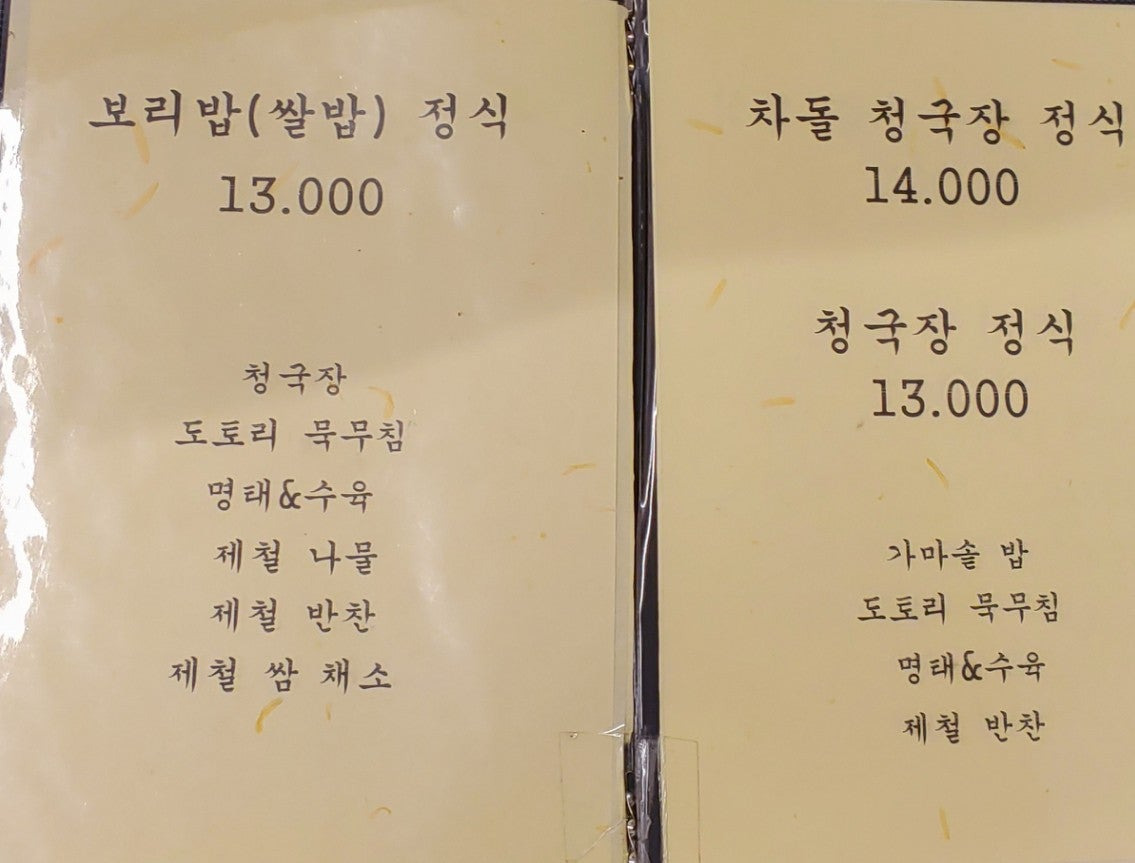 보리밥(쌀밥) 정식
13.000
청국장
도토리 묵무침
명태&수육
제철 나물
제철 반찬
제철 쌈 채소
차돌 청국장 정식
14.000
청국장 정식
13.000
가마솔 밥
도토리 묵무침
명태&수육
제철 반찬